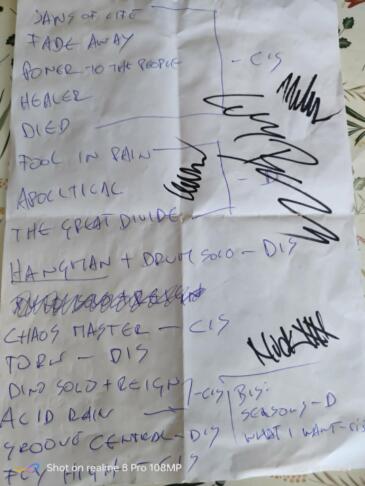 JAWS OF LIFE
FADE AWAY
POWER TO THE PEOPLE
HEALER
DIED
- CIS
FOOL IN PAIN
APOLITICAL
THE GREAT DIVIDE
HANGMAN + DRUM SOLO - DIS
CHAOS MASTER - CIS
TORN - DIS
DINO SOLO + REIGN
ACID RAIN
- CIS
GROOVE CENTRAL - DIS
FLY HIGH - CIS
BIS:
SEASONS - D
WHAT I WANT - CIS
Shot on realme 8 Pro 108MP